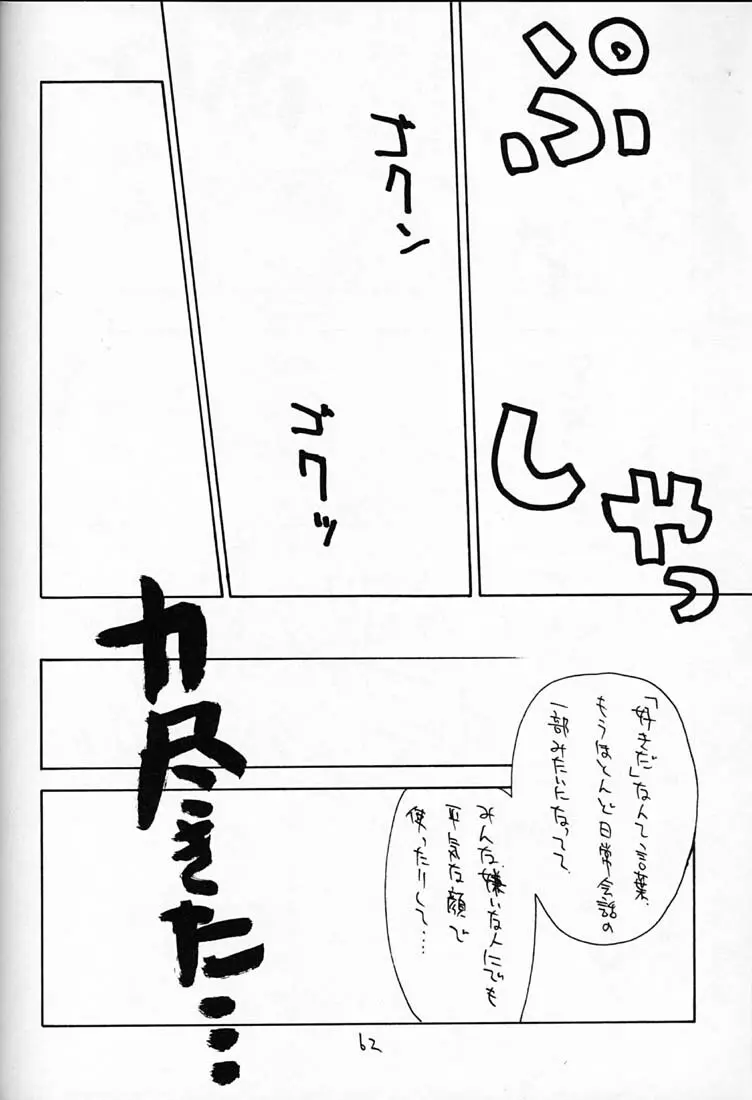 ぷしゃっ
ガクン
ガクッ
力尽きた…
「好きだ」なんて、言葉、
もうほとんど日常会話の
一部みたいになってて
みんな、嫌いな人にでも
平気な顔で
使ったりして……
62